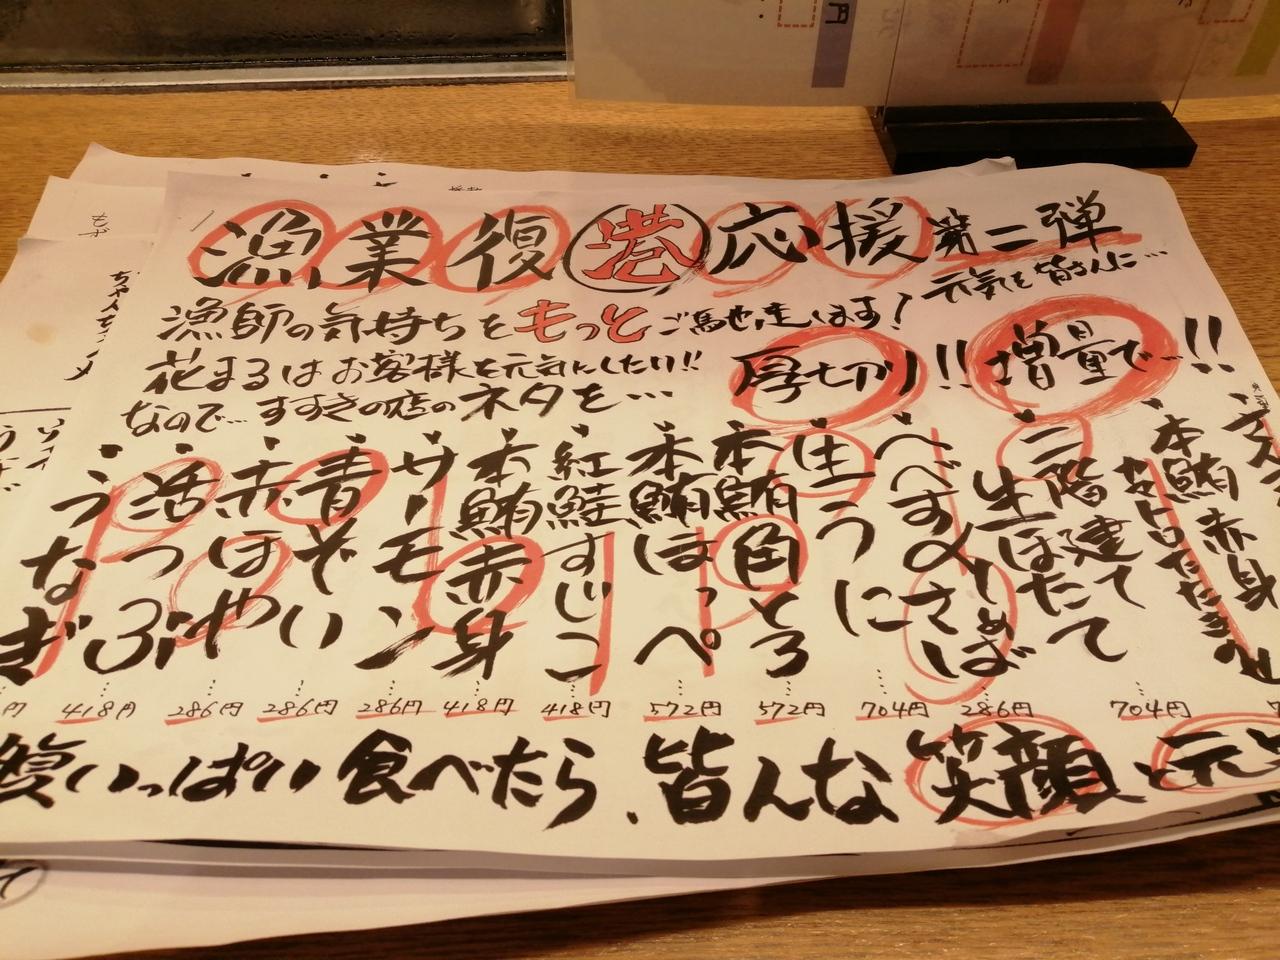 漁業復港応援第二弾
漁師の気持ちをもっとご馳走します!
元気を皆さんに…
花まるはお客様を元気にしたい!!
なので…すすきの店のネタを…
厚切り!!増量で…!!
本鮪赤身
二階建て
生ほたて
べべすの〆さば
生うに
本鮪角とろ
本鮪ほっぺ
紅鮭すじこ
本鮪赤身
サーモン
青そい
赤ほや
活つぶ
うなぎ
円
418円
286円
286円
286円
418円
418円
572円
572円
704円
286円
704円
腹いっぱい食べたら、皆んな笑顔と元